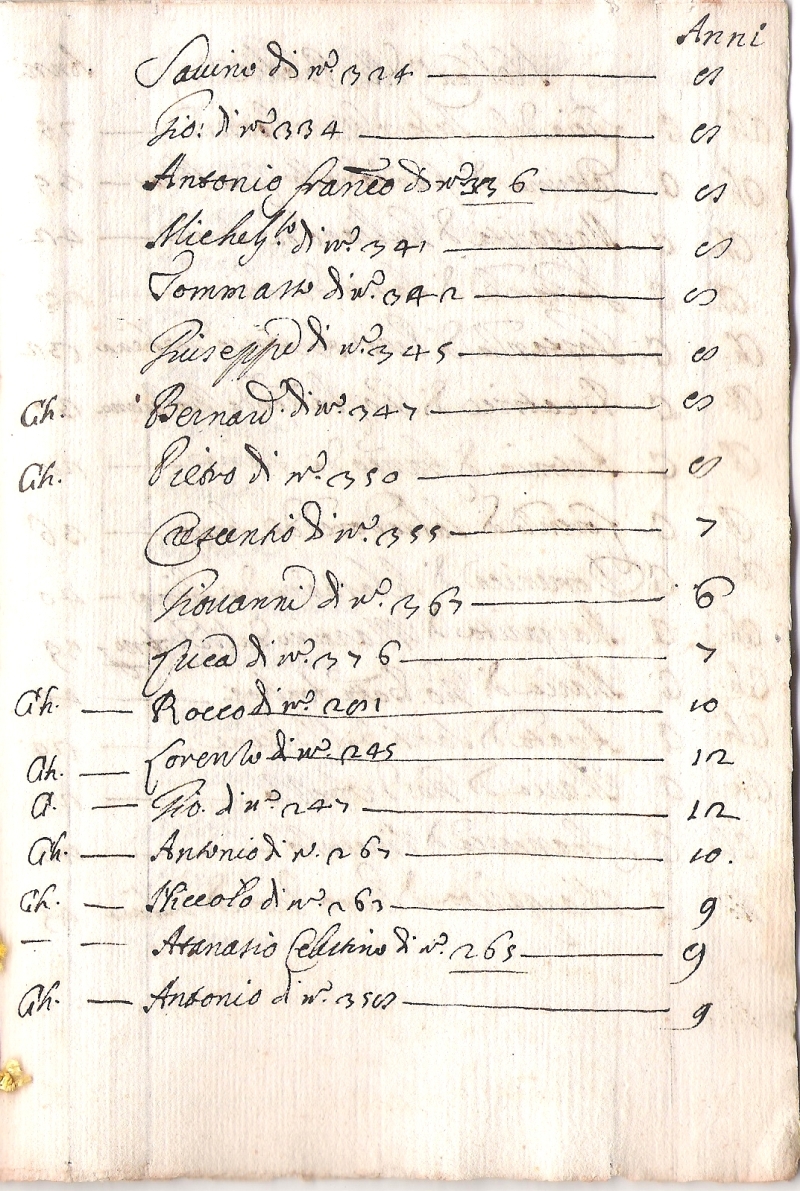 Anni
Savino di n.º 324 — 8
Gio: di n.º 334 — 8
Antonio Franco di n.º 336 — 8
Michel di n.º 341 — 8
Tommaso di n.º 342 — 8
Giuseppe di n.º 345 — 8
Ch. Bernard.º di n.º 347 — 8
Ch. Pietro di n.º 350 — 8
Cresentio di n.º 355 — 7
Giovanni di n.º 363 — 6
Luca di n.º 376 — 7
Ch. — Rocco di n.º 281 — 10
Ch. — Lorenzo di n.º 245 — 12
C. — Gio. di n.º 247 — 12
Ch. — Antonio di n. 267 — 10.
Ch. — Niccolò di n.º 263 — 9
— — Atanasio Celestino di n.º 265 — 9
Ch. — Antonio di n.º 358 — 9